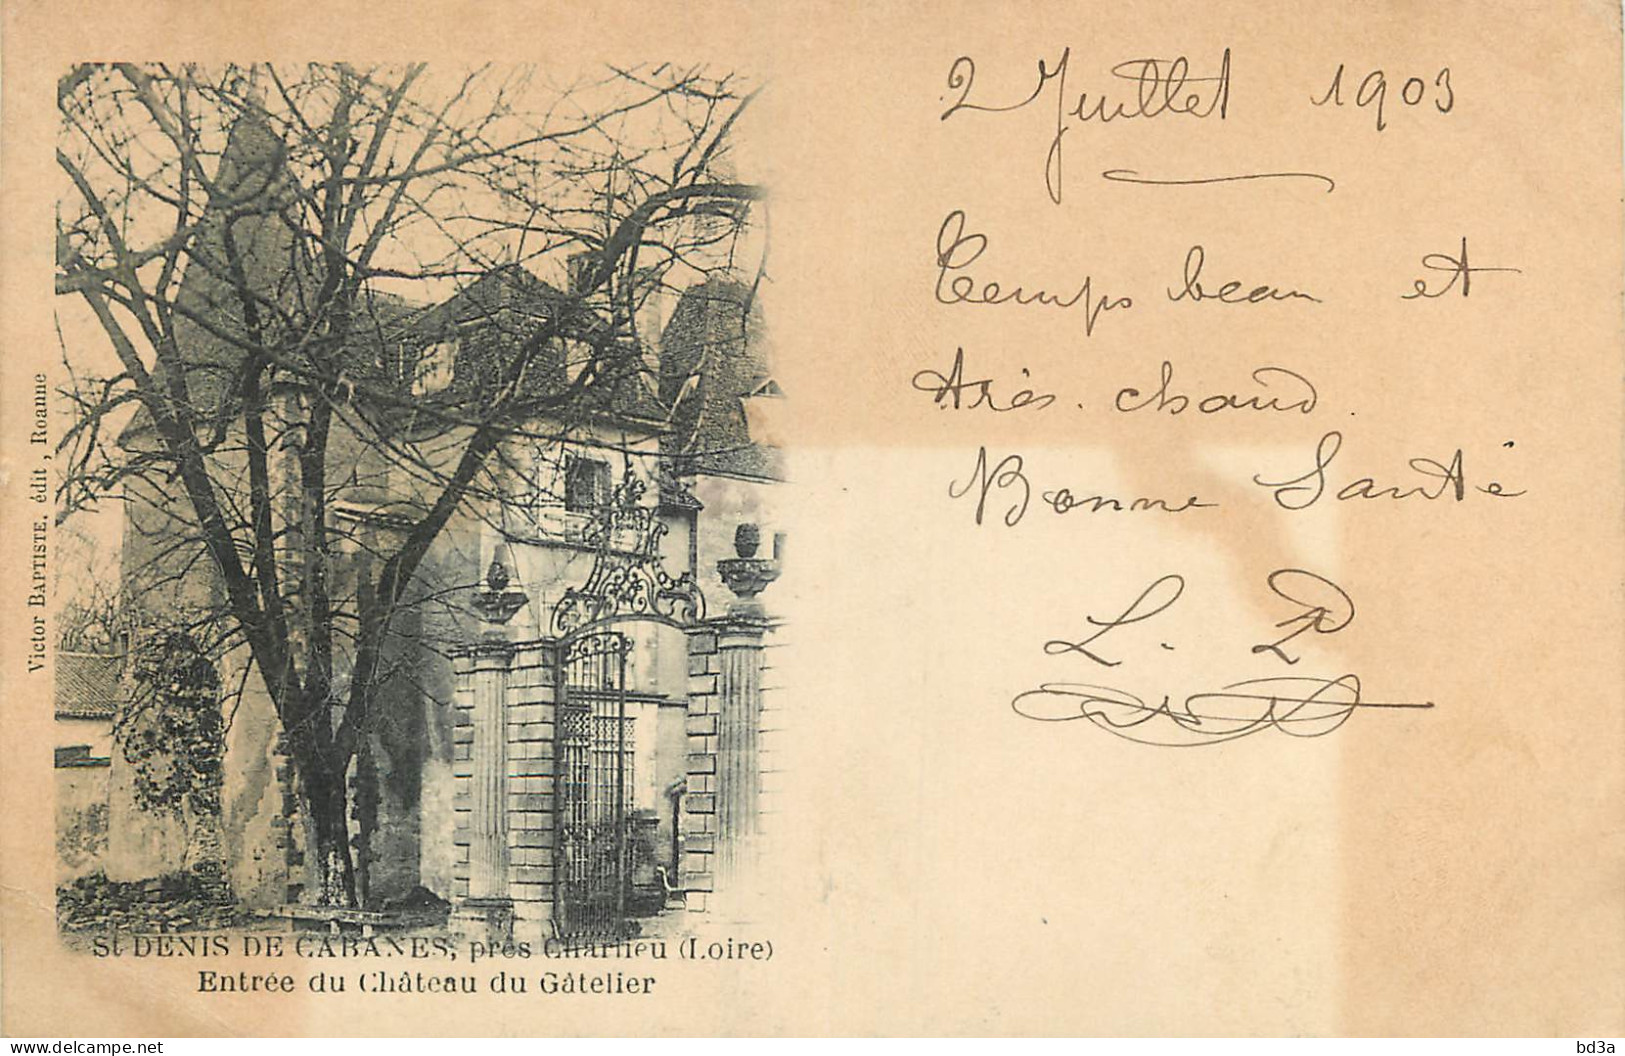 Victor BAPTISTE, édit, Roanne
St DENIS DE CABANES, près Charlieu (Loire)
Entrée du Château du Gâtelier
2 Juillet 1903
Temps beau et
très. chaud.
Bonne Santé
L. P
www.delcampe.net
bd3a